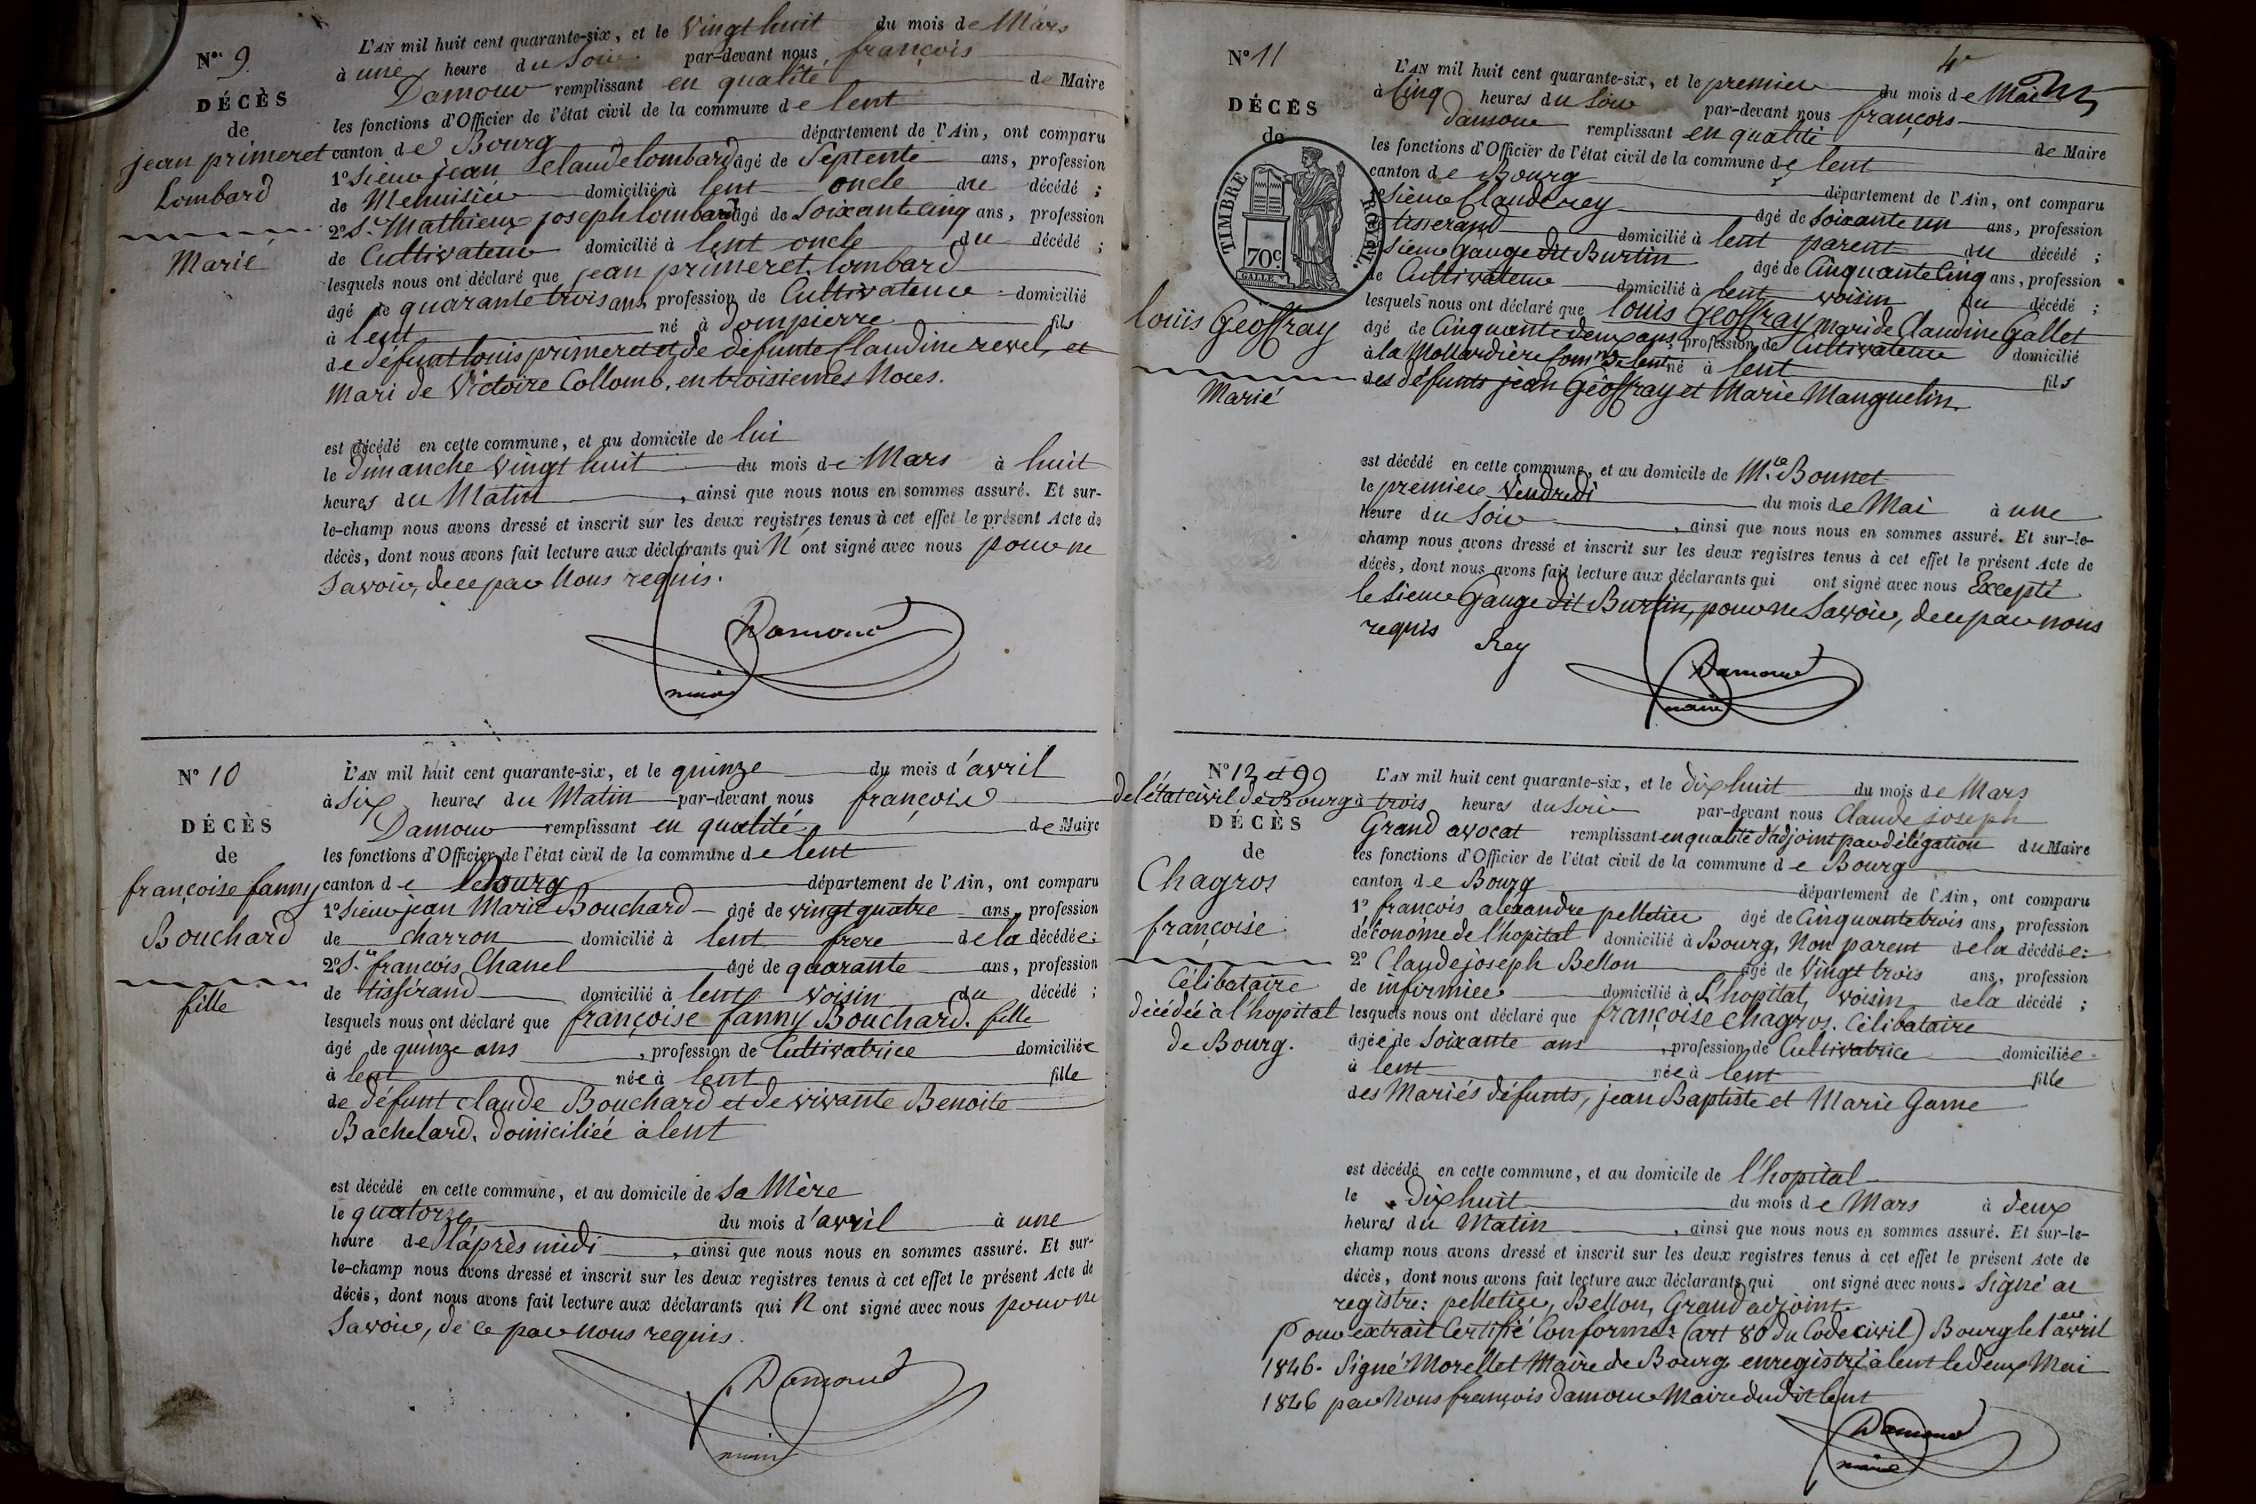 N° 9
DÉCÈS
de
jean primeret
Lombard
Marié
L'AN mil huit cent quarante-six, et le Vingt huit du mois de Mars
à une heure du Soir par-devant nous, françois
Damour remplissant en qualité de Maire
les fonctions d'Officier de l'état civil de la commune de lent
canton de Bourg département de l'Ain, ont comparu
1° Sieur jean Claude lombard âgé de Septente ans, profession
de Menuisier domicilié à lent oncle du décédé;
2° Sr Mathieux joseph lombard âgé de Soixante cinq ans, profession
de Cultivateur domicilié à lent oncle du décédé;
lesquels nous ont déclaré que jean primeret lombard
âgé de quarante trois ans, profession de Cultivateur domicilié
à lent né à dompierre fils
de défunt louis primeret et de defunte Claudine revel, et
Mari de Victoire Collomb, en troisiemes Noces.
est décédé en cette commune, et au domicile de lui
le dimanche vingt huit du mois de Mars à huit
heures du Matin, ainsi que nous nous en sommes assuré. Et sur-
le-champ nous avons dressé et inscrit sur les deux registres tenus à cet effet le présent Acte de
décès, dont nous avons fait lecture aux déclarants qui N'ont signé avec nous pour ne
Savoir, de ce par Nous requis.
Damour
maire
N° 10
DÉCÈS
de
françoise fanny
Bouchard
fille
L'AN mil huit cent quarante-six, et le quinze du mois d'avril
à Six heures du Matin par-devant nous françois
Damour remplissant en qualité de Maire
les fonctions d'Officier de l'état civil de la commune de lent
canton de Bourg département de l'Ain, ont comparu
1° Sieur jean Marie Bouchard âgé de vingt quatre ans, profession
de charron domicilié à lent frere de la décédée;
2° Sr françois Chanel âgé de quarante ans, profession
de tissérand domicilié à lent voisin du décédé;
lesquels nous ont déclaré que françoise fanny Bouchard. fille
âgé de quinze ans, profession de Cultivatrice domiciliée
à lent née à lent fille
de défunt claude Bouchard et de vivante Benoite
Bachelard. domiciliée à lent
est décédé en cette commune, et au domicile de Sa Mère
le quatorze du mois d'avril à une
heure de l'après midi, ainsi que nous nous en sommes assuré. Et sur-
le-champ nous avons dressé et inscrit sur les deux registres tenus à cet effet le présent Acte de
décès, dont nous avons fait lecture aux déclarants qui N'ont signé avec nous pour ne
Savoir, de ce par Nous requis.
Damour
maire
4e
N° 11
DÉCÈS
de
TIMBRE ROYAL.
70c
GALLE
louis Geoffray
Marié
L'AN mil huit cent quarante-six, et le premier du mois de Mai
à Cinq heures du Soir par-devant nous françois
damour remplissant en qualité de Maire
les fonctions d'Officier de l'état civil de la commune de lent
canton de Bourg département de l'Ain, ont comparu
Sieur Claude rey âgé de Soixante un ans, profession
tisserand domicilié à lent parent du décédé;
Sieur Gauge dit Burtin âgé de Cinquante Cinq ans, profession
de Cultivateur domicilié à lent voisin du décédé;
lesquels nous ont déclaré que louis Geoffray mari de Claudine Gallet
âgé de Cinquante deux ans, profession de Cultivateur domicilié
à la Mollardière Comne de lent né à lent fils
des défunts jean Geoffray et Marie Manguelin.
est décédé en cette commune, et au domicile de M. Bonnet
le premier Vendredi du mois de Mai à une
heure du Soir, ainsi que nous nous en sommes assuré. Et sur-le-
champ nous avons dressé et inscrit sur les deux registres tenus à cet effet le présent Acte de
décès, dont nous avons fait lecture aux déclarants qui ont signé avec nous Excepté
le Sieur Gauge dit Burtin, pour ne Savoir, de ce par nous
requis Rey
Damour
maire
N° 12 et 99
de l'état civil de Bourg
DÉCÈS
de
Chagros
françoise
Célibataire
décédée à l'hopital
de Bourg.
L'AN mil huit cent quarante-six, et le dix huit du mois de Mars
à trois heures du Soir par-devant nous Claude joseph
Grand avocat remplissant en qualité d'adjoint par délégation du Maire
les fonctions d'Officier de l'état civil de la commune de Bourg
canton de Bourg département de l'Ain, ont comparu
1° françois alexandre pelletier âgé de Cinquante trois ans, profession
d'économe de l'hopital domicilié à Bourg, Non parent de la décédée;
2° Claude joseph Bellon âgé de Vingt trois ans, profession
de infirmier domicilié à l'hopital, voisin de la décédé;
lesquels nous ont déclaré que françoise Chagros. Célibataire
âgée de Soixante ans, profession de Cultivatrice domiciliée
à lent née à lent fille
des Mariés défunts, jean Baptiste et Marie Game
est décédé en cette commune, et au domicile de l'hopital
le Dix huit du mois de Mars à deux
heures du Matin, ainsi que nous nous en sommes assuré. Et sur-le-
champ nous avons dressé et inscrit sur les deux registres tenus à cet effet le présent Acte de
décès, dont nous avons fait lecture aux déclarants qui ont signé avec nous. Signé au
registre: pelletier, Bellon, Grand adjoint.
Pour extrait Certifié Conforme: (art 80 du Code civil) Bourg le 1er avril
1846. Signé Morellet Maire de Bourg enregistré à lent le deux Mai
1846 par Nous françois damour Maire dudit lent
Damour
maire